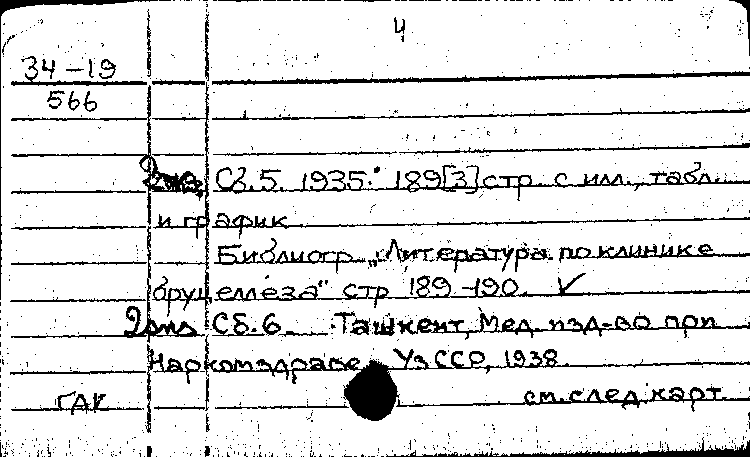 4
34-19
566
2 экз. Сб. 5. 1935. 189[3] стр. с илл., табл.
и график
Библиогр. „Литература по клинике
бруцеллёза" стр 189-190. ✓
2 экз Сб. 6. Ташкент, Мед. изд-во при
Наркомздраве УзССР, 1938.
ГАК см. след. карт